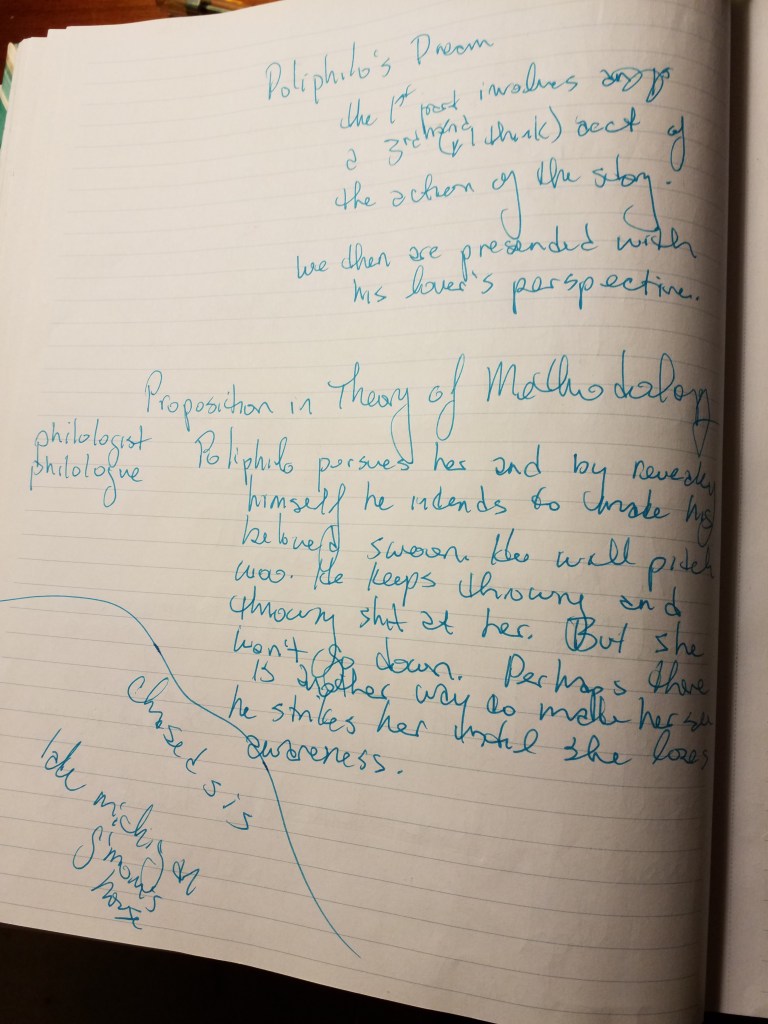 Poliphilo's Dream
the 1st part involves
a 3rd hand (I think) acct of
the action of the story.
we then are presended with
his lover's perspective.
Proposition in Theory of Methodology
philologist
philologue
Poliphilo pursues her and by
himself he intends to make his
beloved swoon. He will pitch
woo. He keeps throwing and
throwing shit at her. But she
won't go down. Perhaps there
is another way to make her
he strikes her until she loses
awareness.
chased sis
lake michigan
g'mom's
house